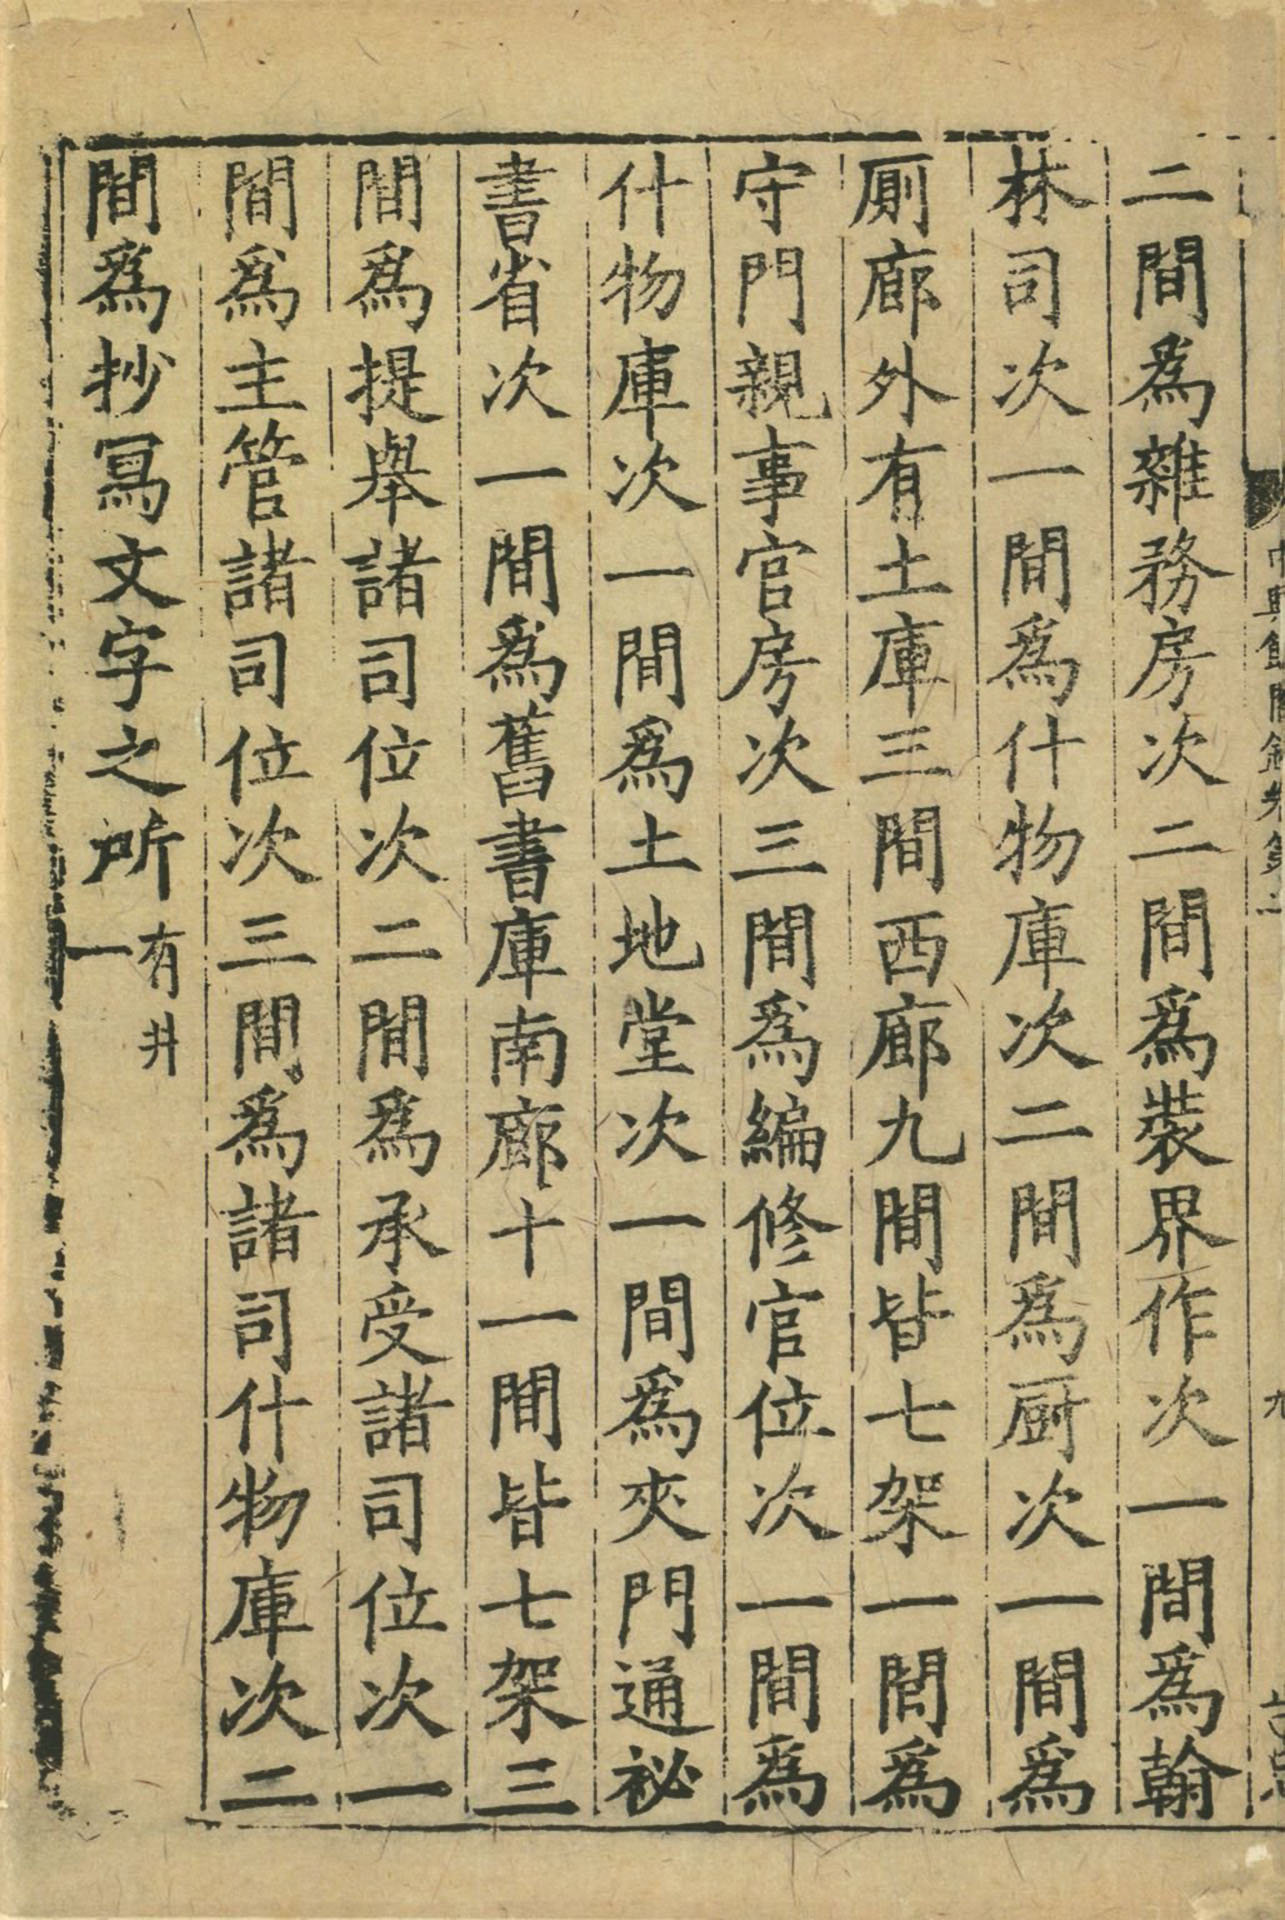 二間為雜務房次二間為裝界作次一間為翰
林司次一間為什物庫次二間為厨次一間為
厠廊外有土庫三間西廊九間皆七架一間為
守門親事官房次三間為編修官位次一間為
什物庫次一間為土地堂次一間為夾門通祕
書省次一間為舊書庫南廊十一間皆七架三
間為提舉諸司位次二間為承受諸司位次一
間為主管諸司位次三間為諸司什物庫次二
間為抄冩文字之所
有井
一
九